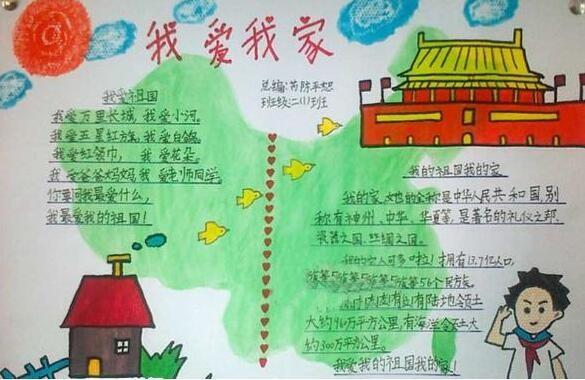 我爱我家
总编:
班级:二(1)班
我爱祖国
我爱万里长城,我爱小河。
我爱五星红旗,我爱白鸽。
我爱红领巾,我爱花朵。
我爱爸爸妈妈,我爱老师同学。
你要问我最爱什么,
我最爱我的祖国!
我的祖国我的家
我的家,她的全称是中华人民共和国,别
称有神州、中华、华夏等,是著名的礼仪之邦、
瓷器之国、丝绸之国。
我的家人可多啦!拥有13.7亿人口,
56个民族。
有陆地领土
大约960万平方公里,有海洋领土大
约300万平方公里。
我爱我的祖国我的家!